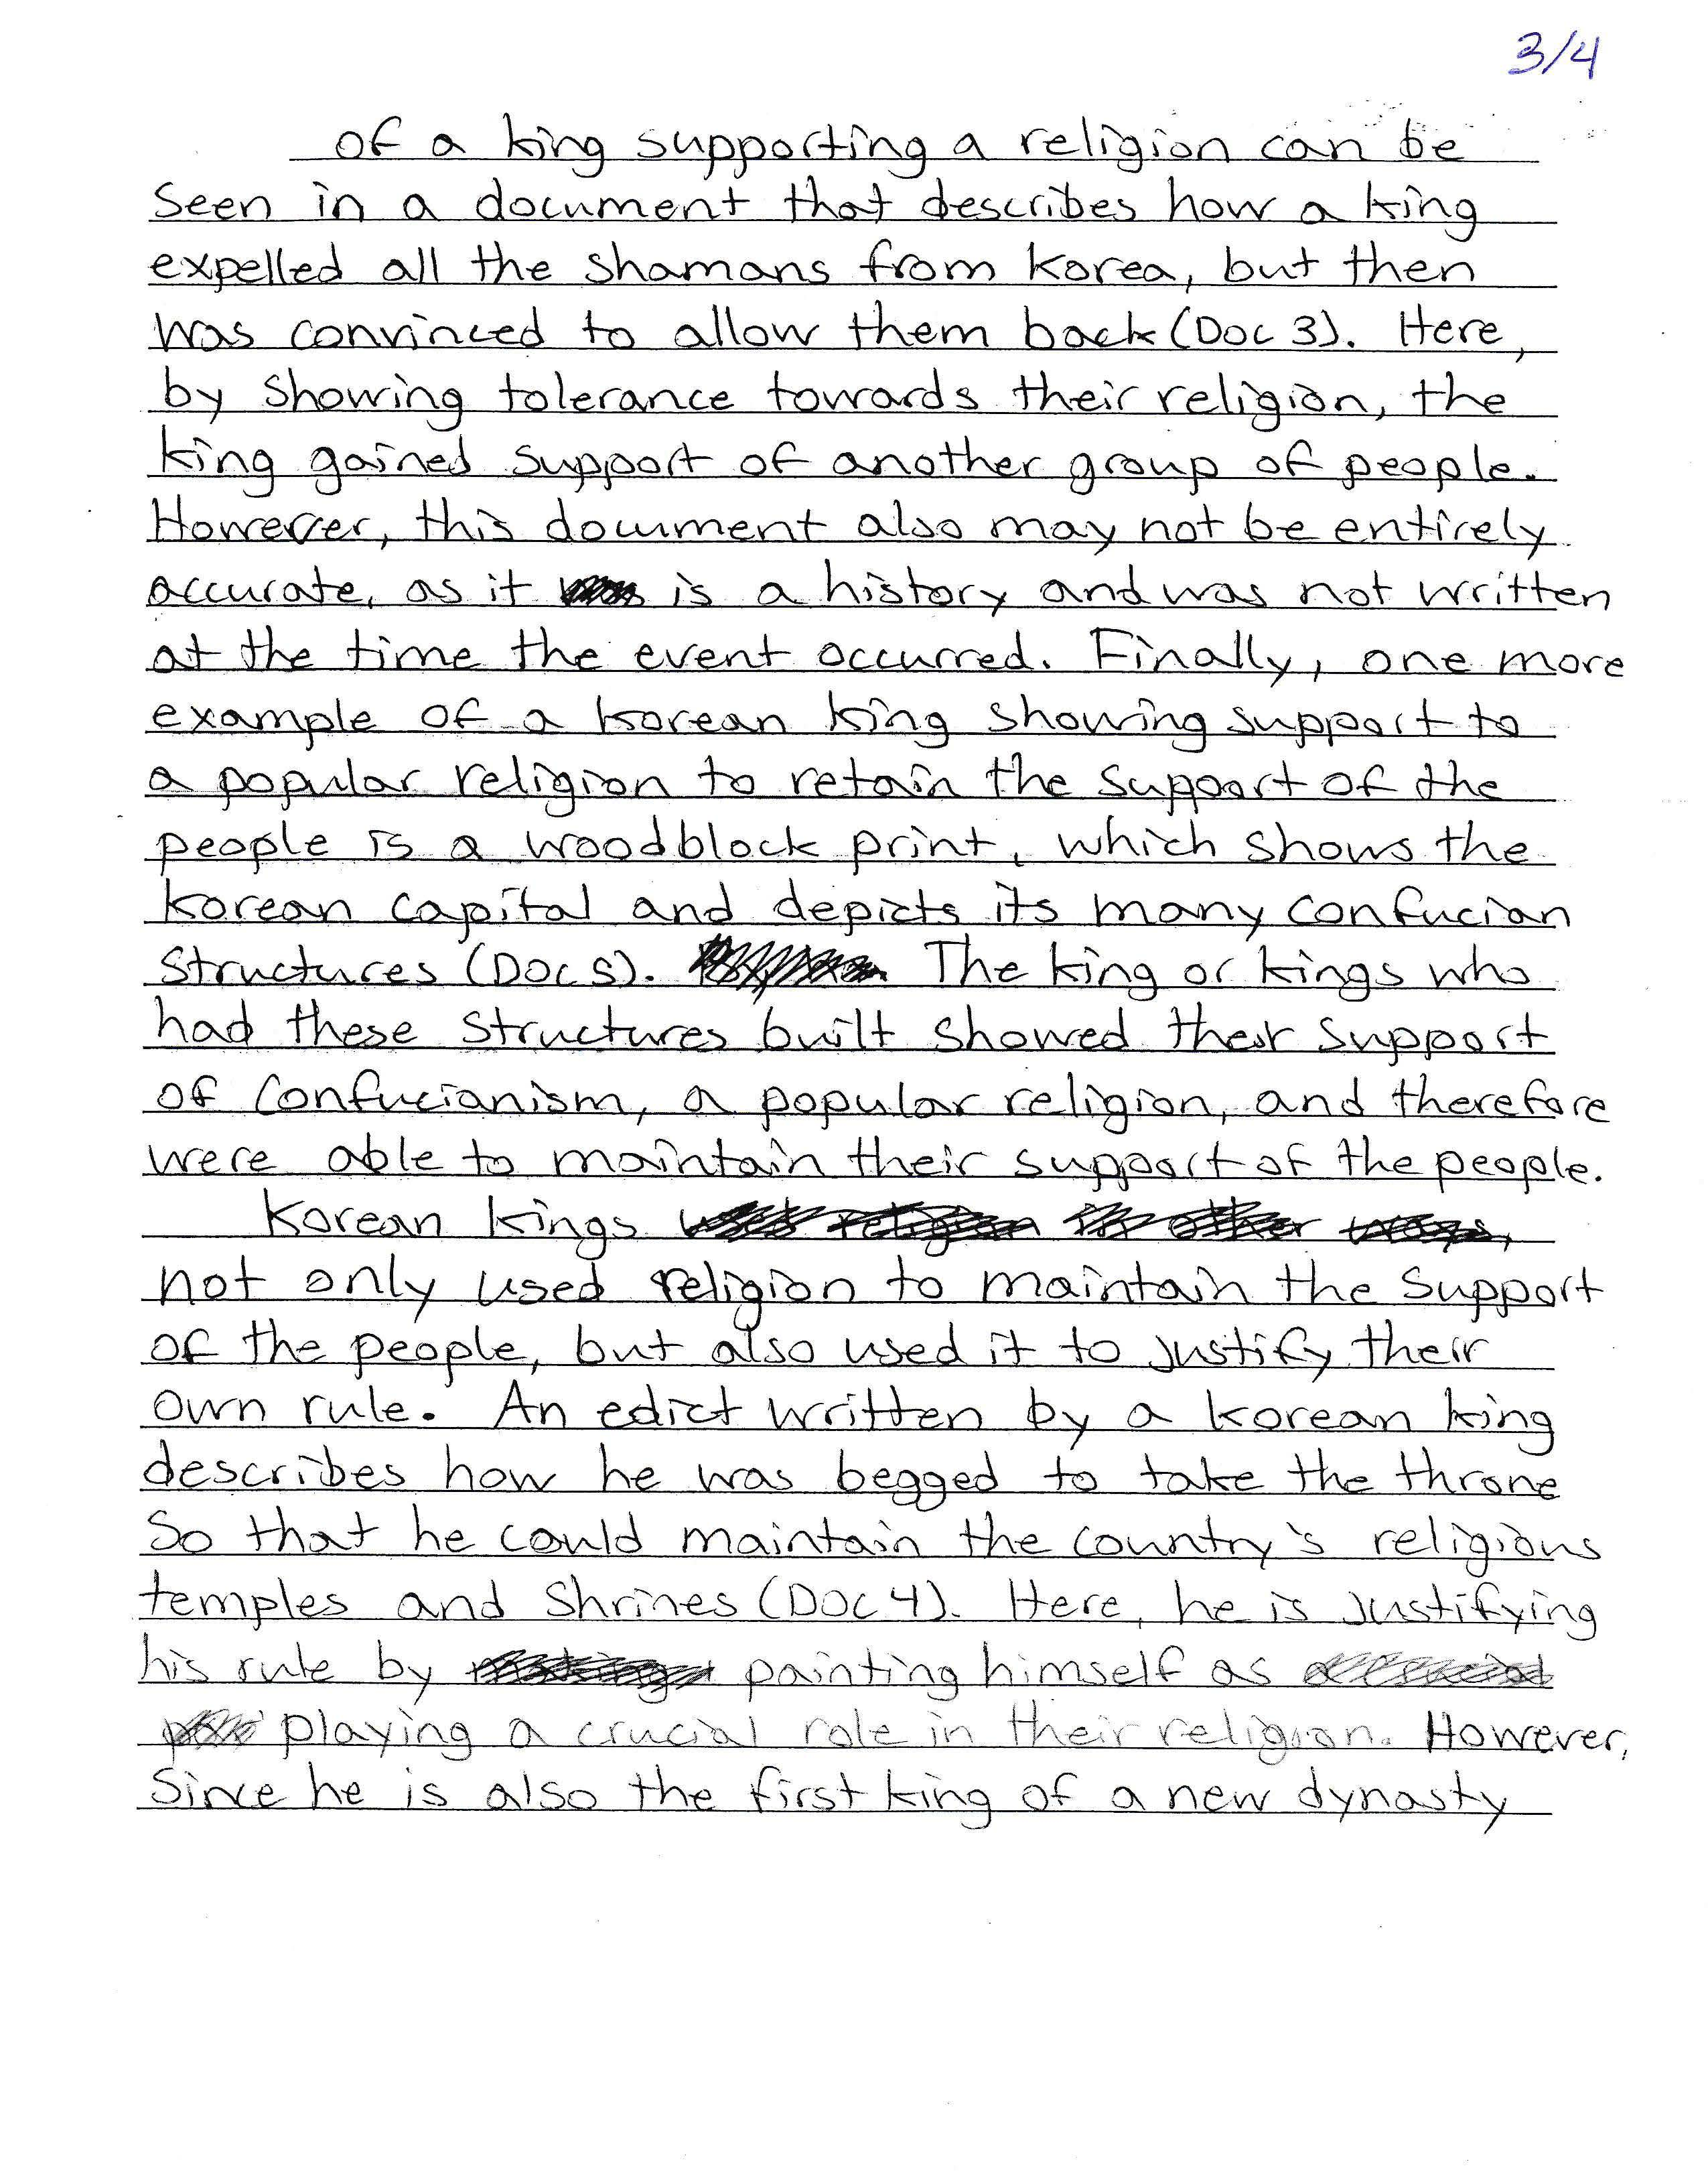 3/4
of a king supporting a religion can be
seen in a document that describes how a king
expelled all the shamans from Korea, but then
was convinced to allow them back (Doc 3). Here,
by showing tolerance towards their religion, the
king gained support of another group of people.
However, this document also may not be entirely
accurate, as it is a history and was not written
at the time the event occurred. Finally, one more
example of a Korean king showing support to
a popular religion to retain the support of the
people is a woodblock print, which shows the
Korean capital and depicts its many Confucian
structures (Doc 5). The king or kings who
had these structures built showed their support
of Confucianism, a popular religion, and therefore
were able to maintain their support of the people.
Korean kings used religion in other ways,
not only used religion to maintain the support
of the people, but also used it to justify their
own rule. An edict written by a Korean king
describes how he was begged to take the throne
so that he could maintain the country's religious
temples and shrines (Doc 4). Here, he is justifying
his rule by painting himself as
playing a crucial role in their religion. However,
since he is also the first king of a new dynasty